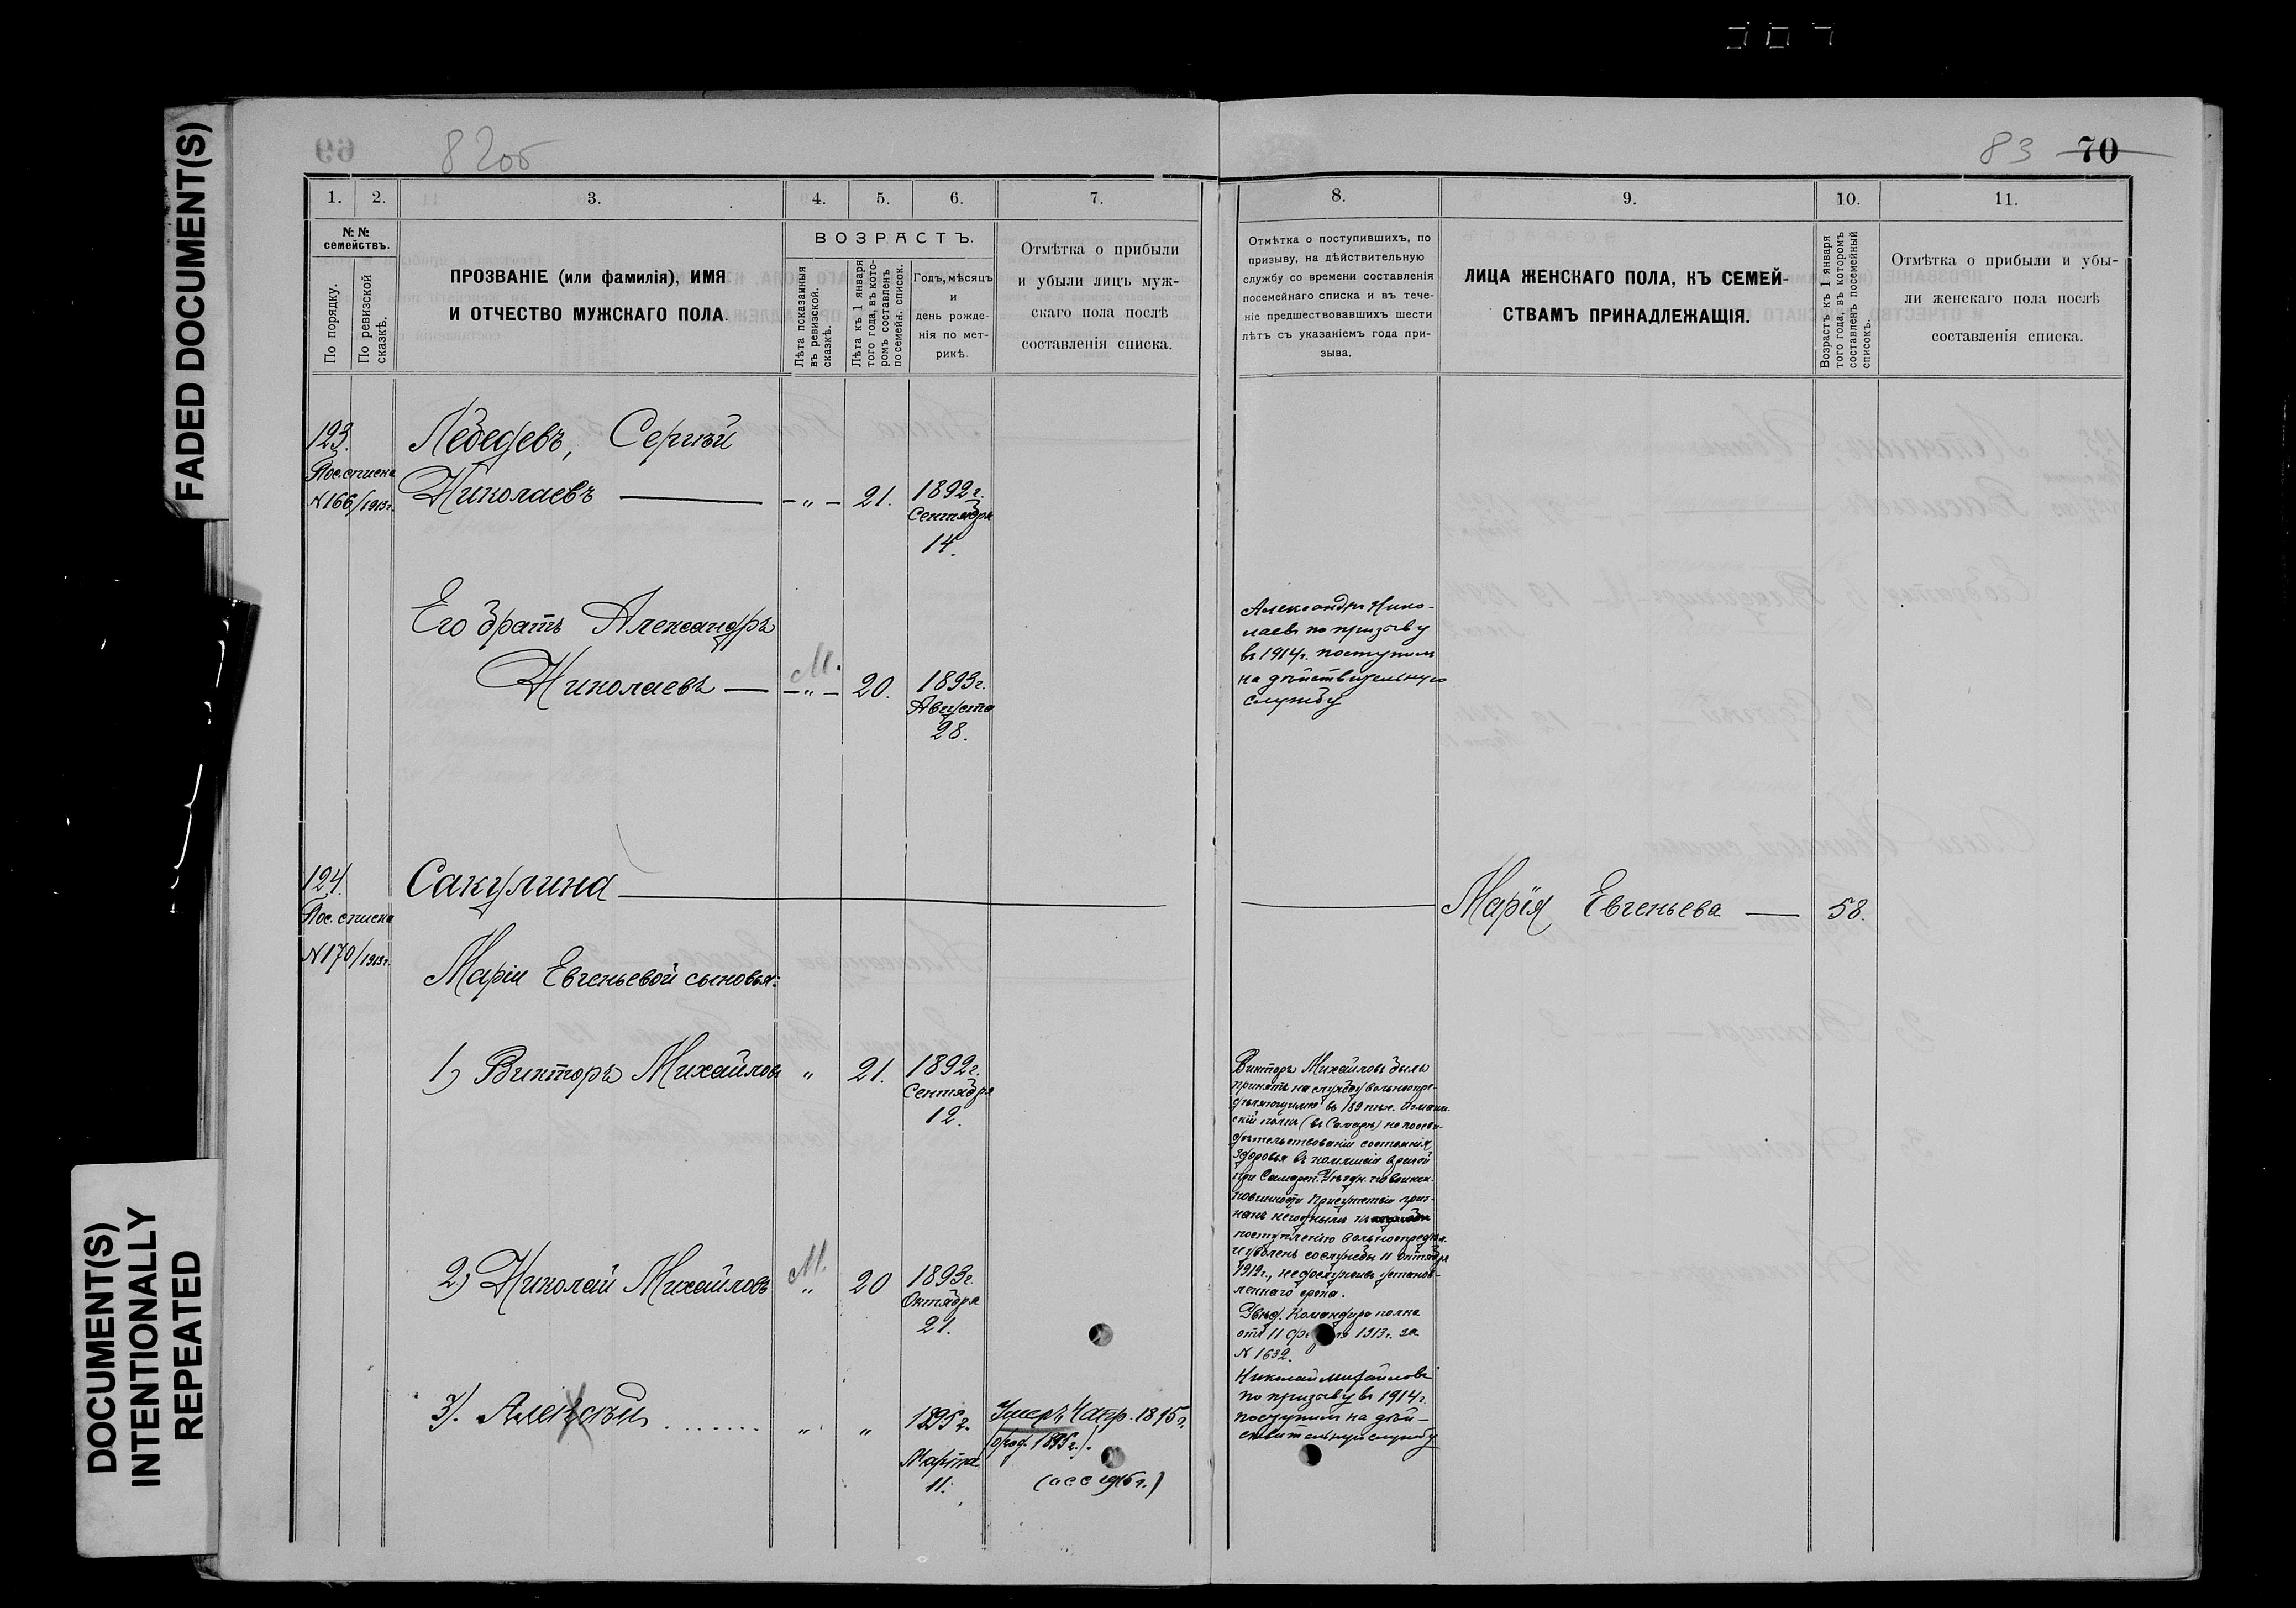 FADED DOCUMENT(S)
DOCUMENT(S)
INTENTIONALLY
REPEATED
82об
83 70
1. 2. 3. 4. 5. 6. 7.
№ №
семействъ.
По порядку.
По ревизской
сказкѣ.
ПРОЗВАНІЕ (или фамилія), ИМЯ
И ОТЧЕСТВО МУЖСКАГО ПОЛА.
ВОЗРАСТЪ.
Лѣта показанныя
въ ревизской.
сказкѣ.
Лѣта къ 1 января
того года, въ кото-
ромъ составленъ
посемейн. списокъ.
Годъ, мѣсяцъ
и
день рожде-
нія по мет-
рикѣ.
Отмѣтка о прибыли
и убыли лицъ муж-
скаго пола послѣ
составленія списка.
123.
Пос. списка
№166/1913г.
Лебедевъ, Сергѣй
Николаевъ — - „ - 21. 1892г.
Сентября
14.
Его братъ Александръ
М.
Николаевъ — - „ - 20. 1893г.
Августа
28.
124.
Пос. списка
№170/1913г.
Сакулина
Маріи Евгеньевой сыновья:
1) Викторъ Михайловъ „ 21. 1892г.
Сентября
12.
М.
2) Николай Михайловъ „ 20 1893г.
Октября
21.
3). Алексѣй ........ „ „ 1895г.
Марта
11.
Умеръ 4 апр. 1895г.
(род. 1895г.).
8. 9. 10. 11.
Отмѣтка о поступившихъ, по
призыву, на дѣйствительную
службу со времени составленія
посемейнаго списка и въ тече-
ніе предшествовавшихъ шести
лѣтъ съ указаніемъ года при-
зыва.
ЛИЦА ЖЕНСКАГО ПОЛА, КЪ СЕМЕЙ-
СТВАМЪ ПРИНАДЛЕЖАЩІЯ.
Возрастъ къ 1 января
того года, въ которомъ
составленъ посемейный
списокъ.
Отмѣтка о прибыли и убы-
ли женскаго пола послѣ
составленія списка.
Александръ Нико-
лаевъ по призыву
въ 1914г. поступилъ
на дѣйствительную
службу
Марія Евгеньева — 58.
Викторъ Михайловъ былъ
принятъ на службу вольноопре-
дѣляющимся въ 189 пѣх. Измаиль-
скій полкъ (въ Самарѣ) но по осви-
дѣтельствованіи состоянія
здоровья въ комиссіи врачей
при Самарск. Уѣздн. по воинск.
повинности Присутствіи приз-
нанъ негоднымъ къ
поступленію вольноопредѣл.
и уволенъ со службы 11 октября
1912г., не дослуживъ установ-
леннаго срока.
Увѣд. Командира полка
отъ 11 февраля 1913г. за
№ 1632.
Николай Михайловъ
по призыву въ 1914г.
поступилъ на дѣй-
ствительную службу